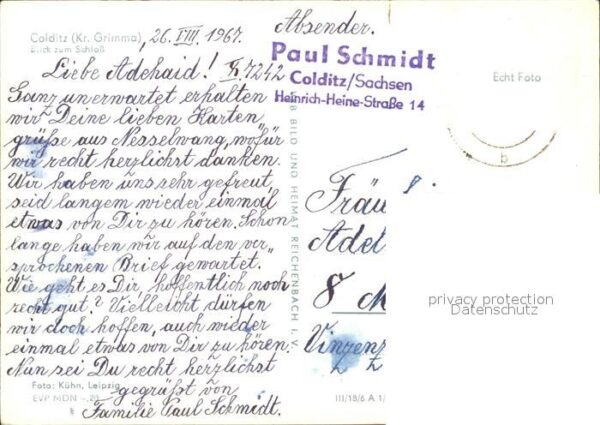 Colditz (Kr. Grimma)
Blick zum Schloß
26. VIII. 1967.
Absender.
Paul Schmidt
Colditz/Sachsen
Heinrich-Heine-Straße 14
7242
Echt Foto
Liebe Adehaid!
Ganz unerwartet erhalten
wir Deine lieben Karten
grüße aus Nesselwang, wofür
wir recht herzlichst danken.
Wir haben uns sehr gefreut,
seid langem wieder einmal
etwas von Dir zu hören. Schon
lange haben wir auf den ver„
sprochenen Brief gewartet.
Wie geht es Dir, hoffentlich noch
recht gut? Vielleicht dürfen
wir doch hoffen, auch wieder
einmal etwas von Dir zu hören.
Nun sei Du recht herzlichst
gegrüßt von
Familie Paul Schmidt.
Foto: Kühn, Leipzig
EVP MDN -,20
BILD UND HEIMAT REICHENBACH I. V.
III/18/6 A 1/
b
Fräu
Adel
8
Vinzenz
privacy protection
Datenschutz